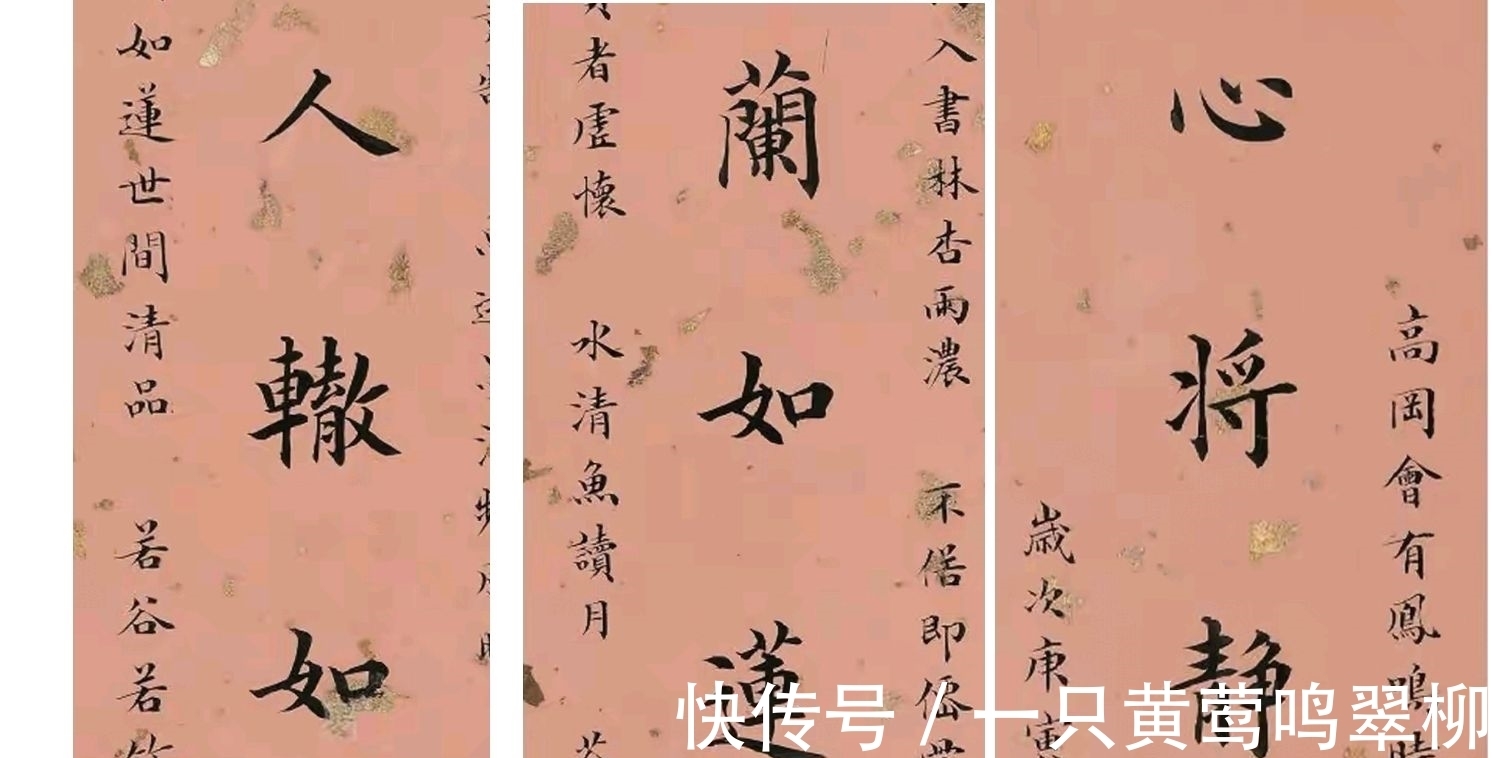 高岡會有鳳鳴時
心将静
歲次庚寅
入書林杏雨濃 不僐即
蘭如蓮
者虚懷 水清魚讀月
人轍如
如蓮世間清品 若谷若竹
快传号 / 一只黄莺鸣翠柳